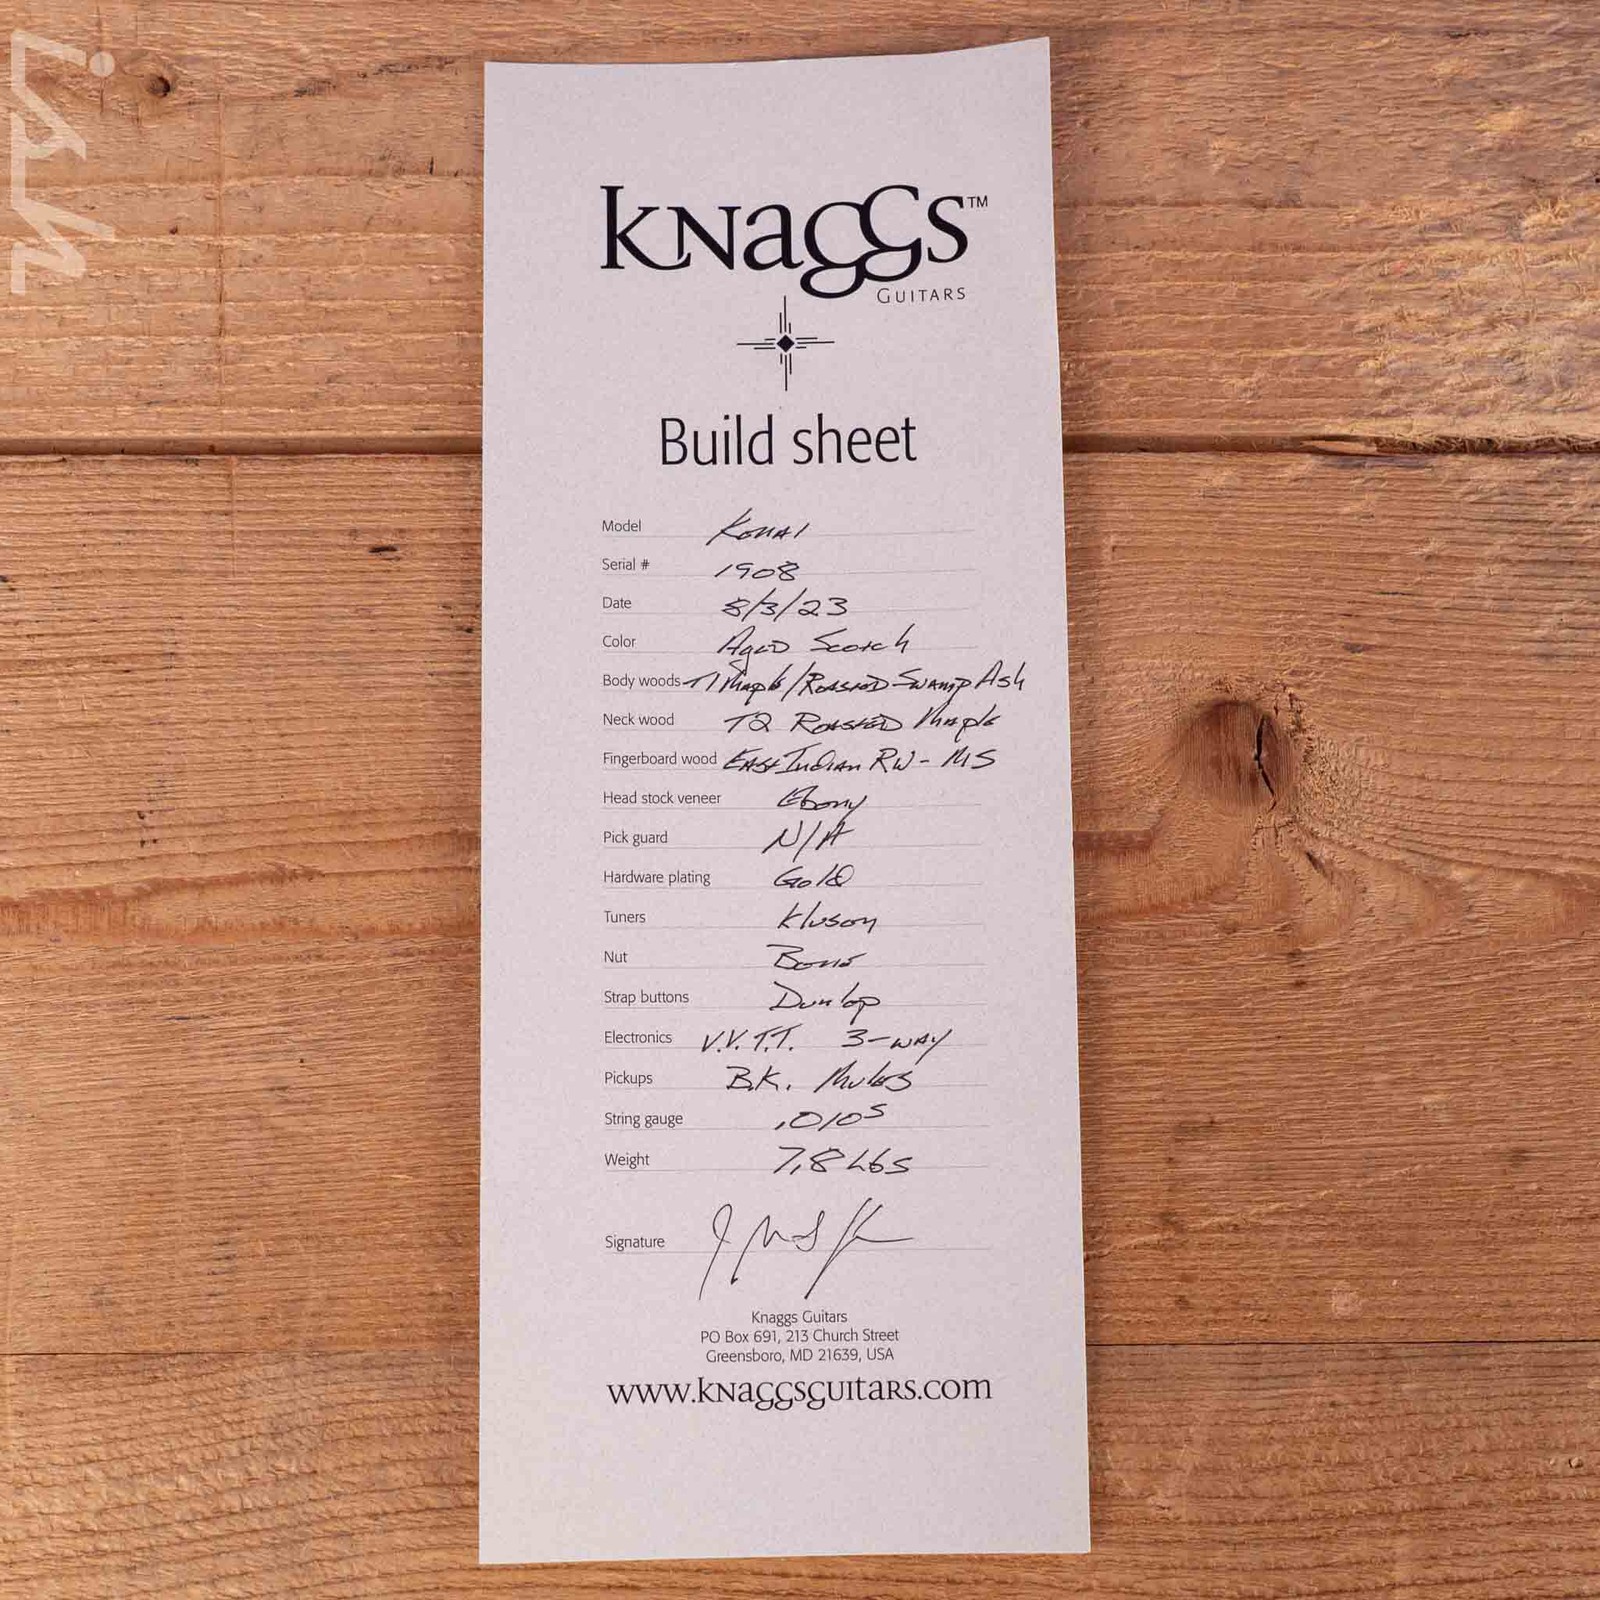 KNaGGS™
GUITARS
Build sheet
Model Kenai
Serial # 1908
Date 8/3/23
Color Aged Scotch
Body woods T1 Maple/Roasted Swamp Ash
Neck wood T2 Roasted Maple
Fingerboard wood East Indian RW - MS
Head stock veneer Ebony
Pick guard N/A
Hardware plating Gold
Tuners Kluson
Nut Bone
Strap buttons Dunlop
Electronics V.V.T.T. 3-way
Pickups B.K. Mules
String gauge .010s
Weight 7.8 Lbs
Signature
Knaggs Guitars
PO Box 691, 213 Church Street
Greensboro, MD 21639, USA
www.KNaGGSGUITARS.com